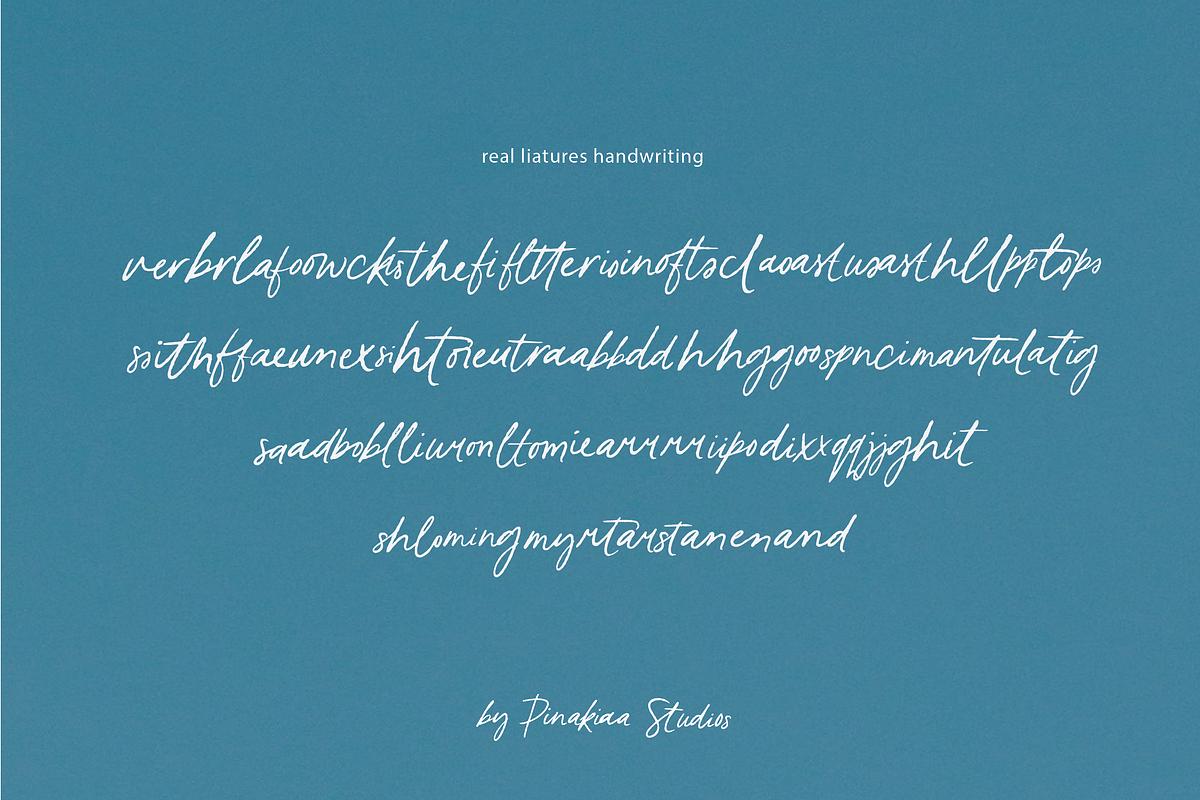 real liatures handwriting
verbrlafoowcksthefifltterioinoftsclaoastusasthllpptops
ssithffaeunexsihtoieutraabbddhhggoospncimantulatig
saadboblliuronltomiearrrriipodixxqqjjghit
shlomingmyrtarstanenand
by Pinakiaa Studios